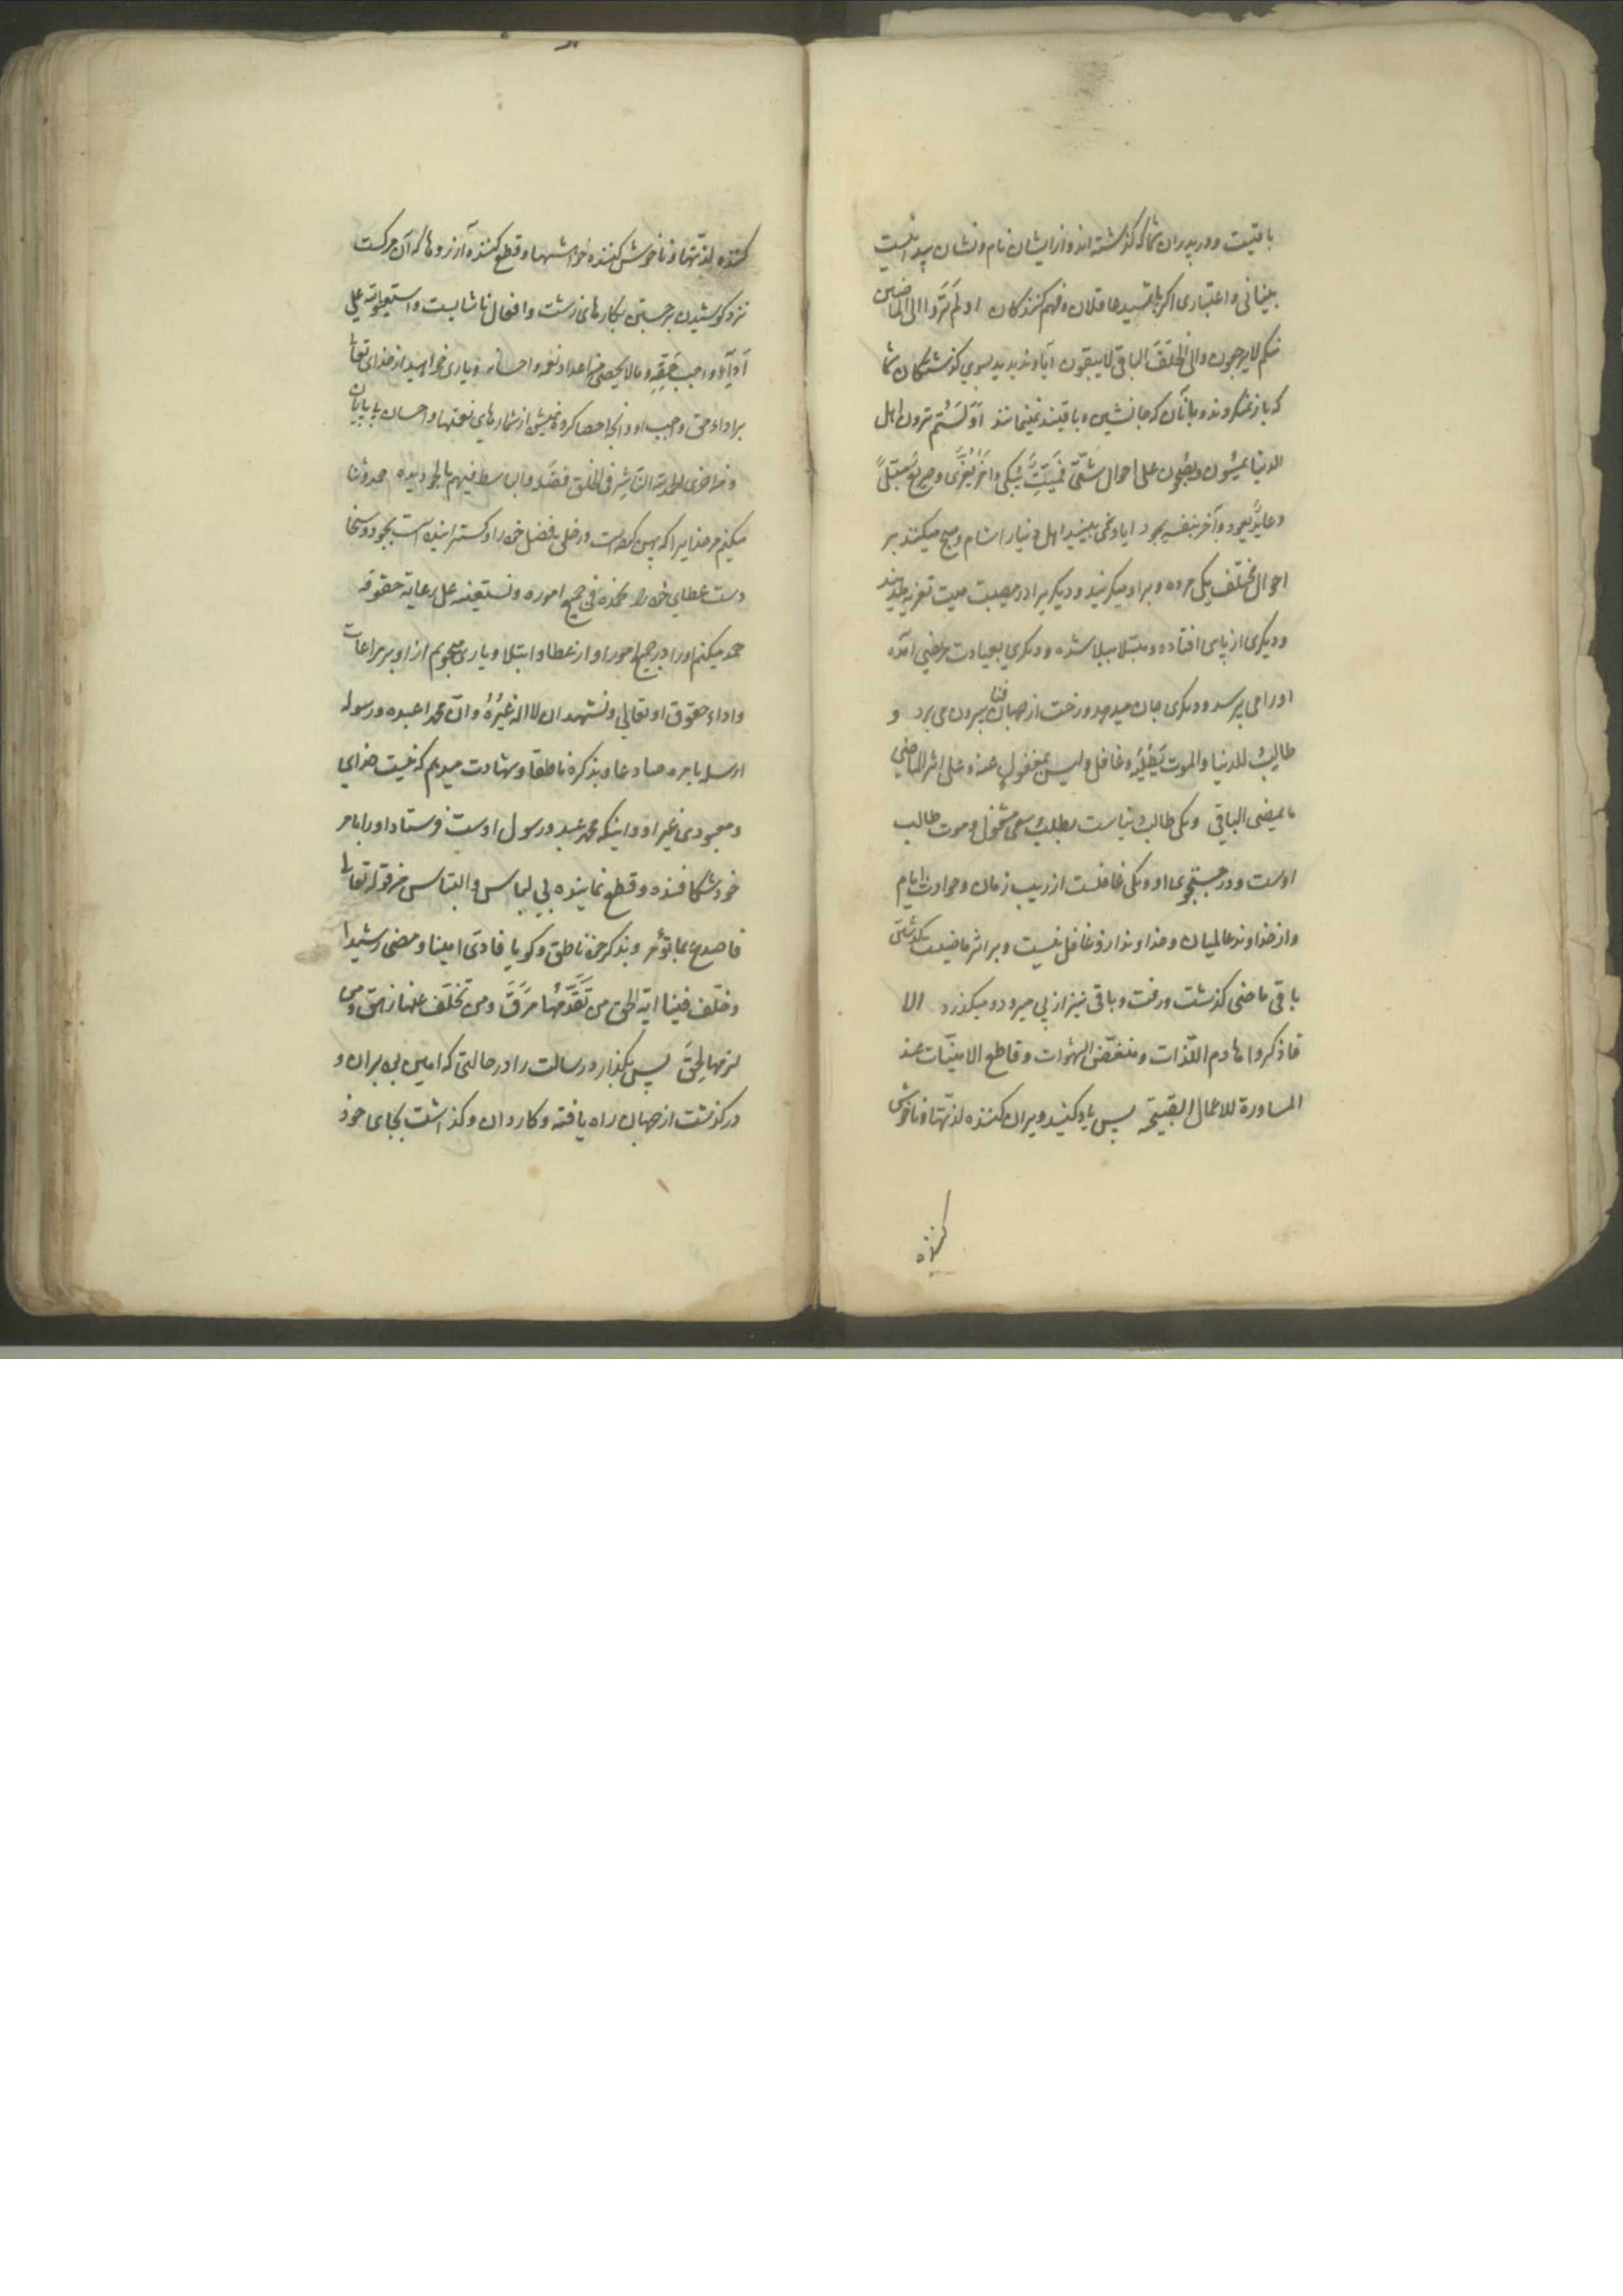 باقیست و در پدران شما که گذشته اند و از ایشان نام و نشان پیدا نیست
بینائی و اعتباری اگر باشید عاقلان و فهم کنندگان اولم تروا الی الماضین
منکم لا یرجعون و الی الخلف الباقی لا یبقون آیا و ندیدید بسوی گذشتگان شما
که باز نمیگردند و بانان که جانشین و باقیند نمیمانند اولستم ترون اهل
الدنیا یمسون و یصبحون علی احوال شتّی فمیّت یبکی و آخر یعزّی و صریع مبتلی
و عاید یعود و آخر بنفسه یجود ایا و نمی بینید اهل دنیا را شام و صبح میکنند بر
احوال مختلف یکی مرده و بر او میگریند و دیگریرا در مصیبت میت تعزیه میدهند
و دیگری از پای افتاده و مبتلا ببلا شده و دیگری بعیادت مریض آمده
او را می پرسد و دیگری جان میدهد و رخت از جهان فنا بیرون می برد و
طالب للدنیا و الموت یطلبه و غافل و لیس بمغفول عنه و علی اثر الماضی
ما یمضی الباقی و یکی طالب دنیاست بطلبش سعی مشغول و موت طالب
اوست و در جستجوی او و یکی غافلست از ریب زمان و حوادث ایام
و از خداوند عالمیان و خداوند از او غافل نیست و بر اثر ماضیست گذشتن
باقی ماضی گذشت و رفت و باقی نیز از پی میرود و میگذرد الا
فاذکروا هادم اللّذات و منغّص الشهوات و قاطع الامنیّات عند
المساورة للاعمال القبیحه پس یاد کنید ویران کننده لذتها و ناخوش
کننده
کننده لذّتها و ناخوش کننده خواهشها و قطع کننده آرزوها که آن مرگست
نزد کوشیدن بر جستن بکارهای زشت و افعال ناشایست و استعینوا الله علی
اداء واجب حقّه و ما لا یحصی من اعداد نعمه و احسانه و یاری خواهید از خدای تعالی
بر اداء حق واجب او و آنچه احصا کرده نمیش از شمارهای نعمتها و احسان بی پایان
و من اخری الحمد لله الناشر فی الخلق فضله و الباسط فیهم بالجود یده حمد و ثنا
میکنم مر خدایرا که پهن کننده است در خلق فضل خود را و گسترانیده است بجود و سخا
دست عطای خود را نحمده فی جمیع اموره و نستعینه علی رعایة حقوقه
حمد میکنم او را در جمیع امور او از عطا و ابتلا و یاری میجویم از او بر مراعات
و اداء حقوق او تعالی و نشهد ان لا اله غیره و ان محمدا عبده و رسوله
ارسله بامره صادعا و بذکره ناطقا و شهادت میدهم که نیست خدای
و معبودی غیر او و اینکه محمد عبد و رسول اوست فرستاد او را بامر
خود شکافنده و قطع نماینده بی لباس و التباس من قوله تعالی
فاصدع بما تؤمر و بذکر خود ناطق و گویا فادّی امینا و مضی رشیدا
و خلّف فینا رایة الحق من تقدّمها مرق و من تخلّف عنها زهق و من
لزمها لحق پس بگذارد رسالت را در حالتی که امین بود بران و
در گذشت از جهان راه یافته و کاردان و گذاشت بجای خود